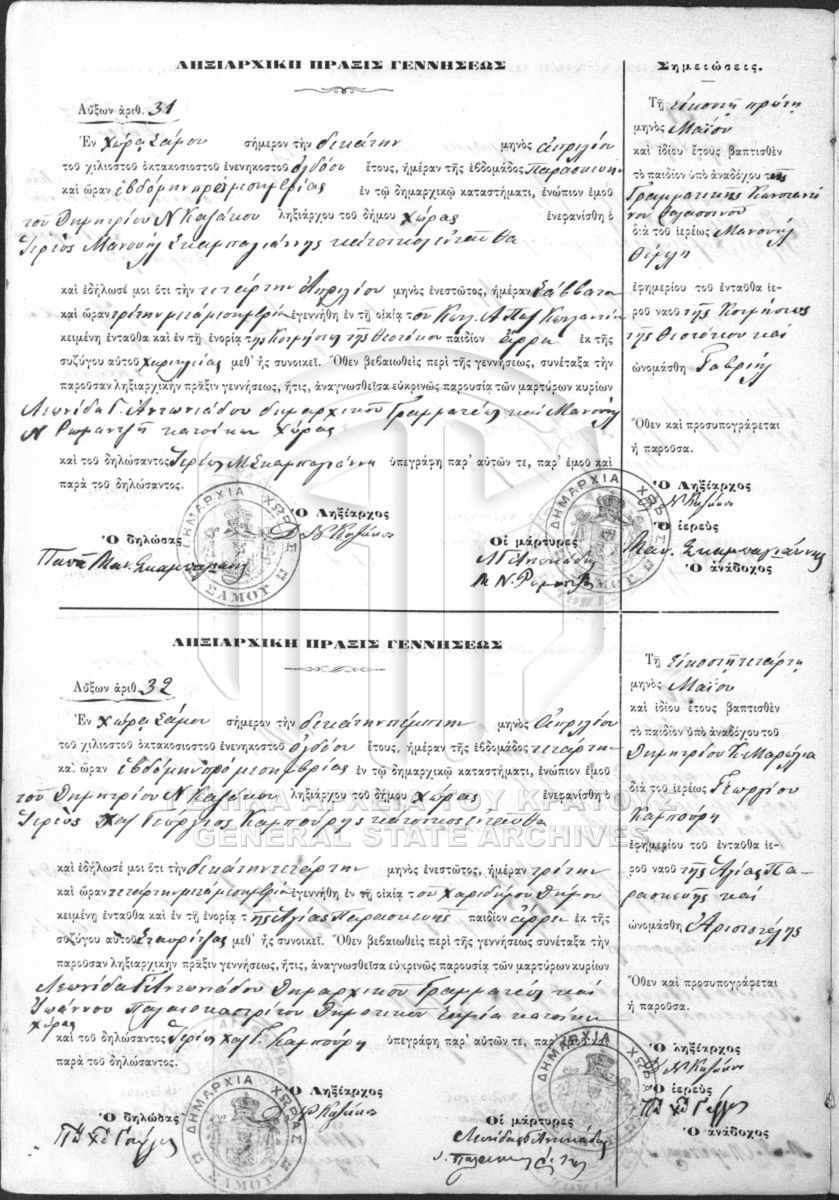 ΛΗΞΙΑΡΧΙΚΗ ΠΡΑΞΙΣ ΓΕΝΝΗΣΕΩΣ
Αὔξων ἀριθ. 31
Ἐν Χώρᾳ Σάμου σήμερον τὴν δεκάτην μηνὸς Ἀπριλίου
τοῦ χιλιοστοῦ ὀκτακοσιοστοῦ ἐνενηκοστοῦ ὀγδόου ἔτους, ἡμέραν τῆς ἑβδομάδος Παρασκευὴν
καὶ ὥραν ἑβδόμην πρὸ μεσημβρίας ἐν τῷ δημαρχικῷ καταστήματι, ἐνώπιον ἐμοῦ
τοῦ Δημητρίου Ν Καζάκου ληξιάρχου τοῦ δήμου Χώρας ἐνεφανίσθη ὁ
Ἱερεὺς Μανουὴλ Σκαμπαγιάννης κάτοικος ἐνταῦθα
καὶ ἐδήλωσέ μοι ὅτι τὴν τετάρτην Ἀπριλίου μηνὸς ἐνεστῶτος, ἡμέραν Σάββατον
καὶ ὥραν τρίτην μετὰ μεσημβρίαν ἐγεννήθη ἐν τῇ οἰκίᾳ τοῦ
κειμένῃ ἐνταῦθα καὶ ἐν τῇ ἐνορίᾳ τῆς Κοιμήσεως τῆς Θεοτόκου παιδίον ἄρρεν ἐκ τῆς
συζύγου αὐτοῦ Χαρικλείας μεθ' ἧς συνοικεῖ. Ὅθεν βεβαιωθεὶς περὶ τῆς γεννήσεως, συνέταξα τὴν
παροῦσαν ληξιαρχικὴν πρᾶξιν γεννήσεως, ἥτις, ἀναγνωσθεῖσα εὐκρινῶς παρουσίᾳ τῶν μαρτύρων κυρίων
Λεωνίδα Γ. Ἀντωνιάδου δημαρχικοῦ Γραμματέως καὶ Μανουὴλ
Ν κατοίκων Χώρας
καὶ τοῦ δηλώσαντος Ἱερέως Μ Σκαμπαγιάννη ὑπεγράφη παρ' αὐτῶν τε, παρ' ἐμοῦ καὶ
παρὰ τοῦ δηλώσαντος.
Ὁ Ληξίαρχος
Δ Ν Καζάκος
Ὁ δηλώσας
Παπᾶ Μαν. Σκαμπαγιάννης
Οἱ μάρτυρες
ΔΗΜΑΡΧΙΑ ΧΩΡΑΣ
ΣΑΜΟΥ
Σημειώσεις.
Τῇ εἰκοστῇ πρώτῃ
μηνὸς Μαΐου
καὶ ἰδίου ἔτους βαπτισθὲν
τὸ παιδίον ὑπὸ ἀναδόχου τῆς
Γραμματικῆς Κωνσταντί
νου
διὰ τοῦ ἱερέως Μανουὴλ
ἐφημερίου τοῦ ἐνταῦθα ἱε-
ροῦ ναοῦ τῆς Κοιμήσεως
τῆς Θεοτόκου καὶ
ὠνομάσθη Γαβριὴλ
Ὅθεν καὶ προσυπογράφεται
ἡ παροῦσα.
Ὁ Ληξίαρχος
Δ Ν Καζάκος
Ὁ ἱερεὺς
Μαν. Σκαμπαγιάννης
Ὁ ἀνάδοχος
ΔΗΜΑΡΧΙΑ ΧΩΡΑΣ
ΣΑΜΟΥ
ΛΗΞΙΑΡΧΙΚΗ ΠΡΑΞΙΣ ΓΕΝΝΗΣΕΩΣ
Αὔξων ἀριθ. 32
Ἐν Χώρᾳ Σάμου σήμερον τὴν δεκάτην πέμπτην μηνὸς Ἀπριλίου
τοῦ χιλιοστοῦ ὀκτακοσιοστοῦ ἐνενηκοστοῦ ὀγδόου ἔτους, ἡμέραν τῆς ἑβδομάδος τετάρτην
καὶ ὥραν ἑβδόμην πρὸ μεσημβρίας ἐν τῷ δημαρχικῷ καταστήματι, ἐνώπιον ἐμοῦ
τοῦ Δημητρίου Ν Καζάκου ληξιάρχου τοῦ δήμου Χώρας ἐνεφανίσθη ὁ
Ἱερεὺς Χατ Γεώργιος Καμπούρης κάτοικος ἐνταῦθα
καὶ ἐδήλωσέ μοι ὅτι τὴν δεκάτην τετάρτην μηνὸς ἐνεστῶτος, ἡμέραν τρίτην
καὶ ὥραν τετάρτην μετὰ μεσημβρίαν ἐγεννήθη ἐν τῇ οἰκίᾳ τοῦ Χαριδήμου Δήμου
κειμένῃ ἐνταῦθα καὶ ἐν τῇ ἐνορίᾳ τῆς Ἁγίας Παρασκευῆς παιδίον ἄρρεν ἐκ τῆς
συζύγου αὐτοῦ Σταυρίτζας μεθ' ἧς συνοικεῖ. Ὅθεν βεβαιωθεὶς περὶ τῆς γεννήσεως συνέταξα τὴν
παροῦσαν ληξιαρχικὴν πρᾶξιν γεννήσεως, ἥτις, ἀναγνωσθεῖσα εὐκρινῶς παρουσίᾳ τῶν μαρτύρων κυρίων
Λεωνίδα Γ. Ἀντωνιάδου Δημαρχικοῦ Γραμματέως καὶ
Ἰωάννου Παλαιοκαστρίτου Δημοτικοῦ κατοίκων
Χώρας
καὶ τοῦ δηλώσαντος Ἱερέως Χατ Γ. Καμπούρη ὑπεγράφη παρ' αὐτῶν τε, παρ' ἐμοῦ καὶ
παρὰ τοῦ δηλώσαντος.
Ὁ Ληξίαρχος
Δ Ν Καζάκος
Ὁ δηλώσας
Οἱ μάρτυρες
Λεωνίδας Γ. Ἀντωνιάδης
ΔΗΜΑΡΧΙΑ ΧΩΡΑΣ
ΣΑΜΟΥ
Τῇ εἰκοστῇ τετάρτῃ
μηνὸς Μαΐου
καὶ ἰδίου ἔτους βαπτισθὲν
τὸ παιδίον ὑπὸ ἀναδόχου τοῦ
Δημητρίου Κ.
διὰ τοῦ ἱερέως Γεωργίου
Καμπούρη
ἐφημερίου τοῦ ἐνταῦθα ἱε-
ροῦ ναοῦ τῆς Ἁγίας Πα-
ρασκευῆς καὶ
ὠνομάσθη Ἀριστοτέλης
Ὅθεν καὶ προσυπογράφεται
ἡ παροῦσα.
Ὁ ληξίαρχος
Δ Ν Καζάκος
Ὁ ἱερεὺς
Ὁ ἀνάδοχος
ΔΗΜΑΡΧΙΑ ΧΩΡΑΣ
ΓΕΝΙΚΑ ΑΡΧΕΙΑ ΤΟΥ ΚΡΑΤΟΥΣ
GENERAL STATE ARCHIVES